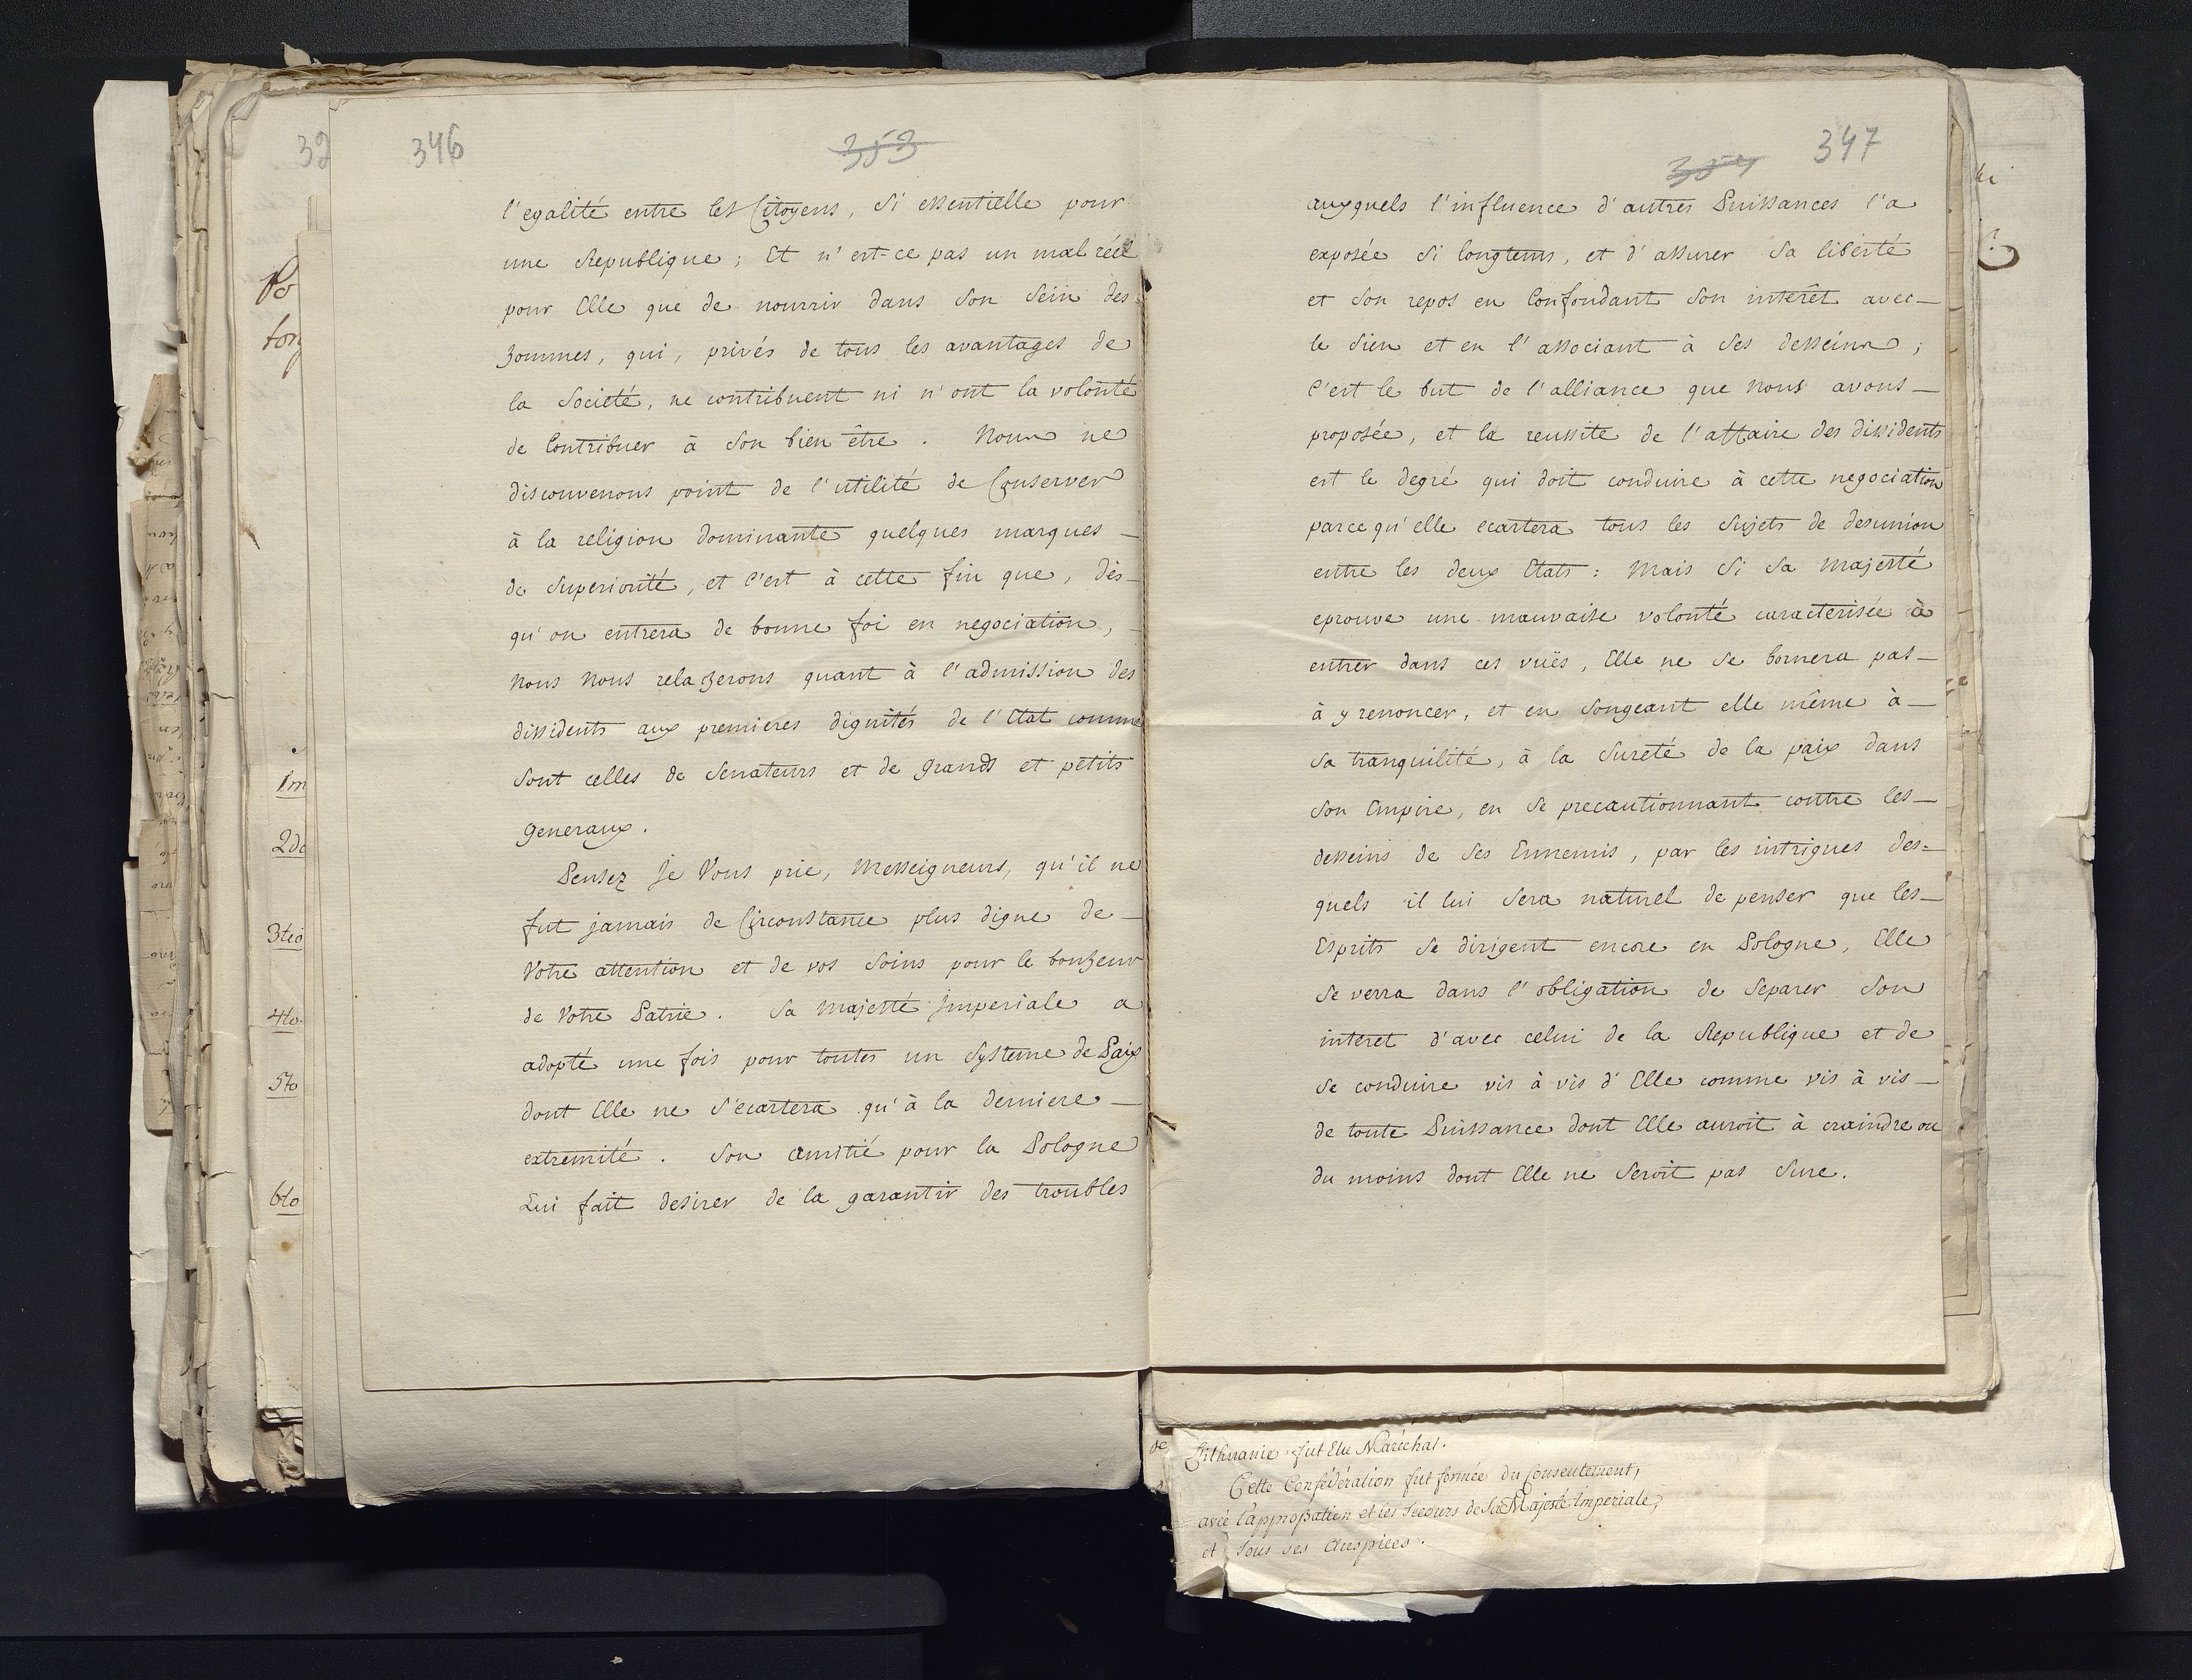 346
353
l'egalité entre les Citoyens, si essentielle pour
une Republique; Et n'est-ce pas un mal réel
pour Elle que de nourrir dans son sein des
hommes, qui, privés de tous les avantages de
la Societé, ne contribuent ni n'ont la volonté
de Contribuer à son bien être. Nous ne
disconvenons point de l'utilité de Conserver
à la religion dominante quelques marques
de Superiorité, et c'est à cette fin que, dès
qu'on entrera de bonne foi en negociation,
nous nous relacherons quant à l'admission des
dissidents aux premieres dignités de l'Etat comme
sont celles de Senateurs et de grands et petits
generaux.
Pensez je Vous prie, Messeigneurs, qu'il ne
fut jamais de Circonstance plus digne de
Votre attention et de vos soins pour le bonheur
de Votre Patrie. Sa Majesté Imperiale a
adopté une fois pour toutes un Systeme de Paix
dont Elle ne s'ecartera qu'à la derniere
extremité. Son amitié pour la Pologne
Lui fait desirer de la garantir des troubles
347
354
auxquels l'influence d'autres Puissances l'a
exposée si longtems, et d'assurer sa liberté
et son repos en Confondant son intérêt avec
le sien et en l'associant à ses desseins;
C'est le but de l'alliance que nous avons
proposée, et la reussite de l'affaire des dissidents
est le degré qui doit conduire à cette negociation
parcequ'elle ecartera tous les sujets de desunion
entre les deux Etats: Mais si sa Majesté
eprouve une mauvaise volonté caracterisée à
entrer dans ces vuës, Elle ne se bornera pas
à y renoncer, et en songeant elle même à
sa tranquilité, à la sureté de la paix dans
son Empire, en se precautionnant contre les
desseins de ses Ennemis, par les intrigues des=
quels il lui sera naturel de penser que les
Esprits se dirigent encore en Pologne, Elle
se verra dans l'obligation de separer son
intéret d'avec celui de la Republique et de
se conduire vis à vis d'Elle comme vis à vis
de toute Puissance dont Elle auroit à craindre ou
du moins dont Elle ne seroit pas sure.
32
Po
1m
2do
3tio
4to
5to
6to
Lithuanie fut Elu Maréchal.
Cette Confédération fut formée du Consentement,
avec l'approbation et les Secours de Sa Majesté Imperiale,
et sous ses Auspices.